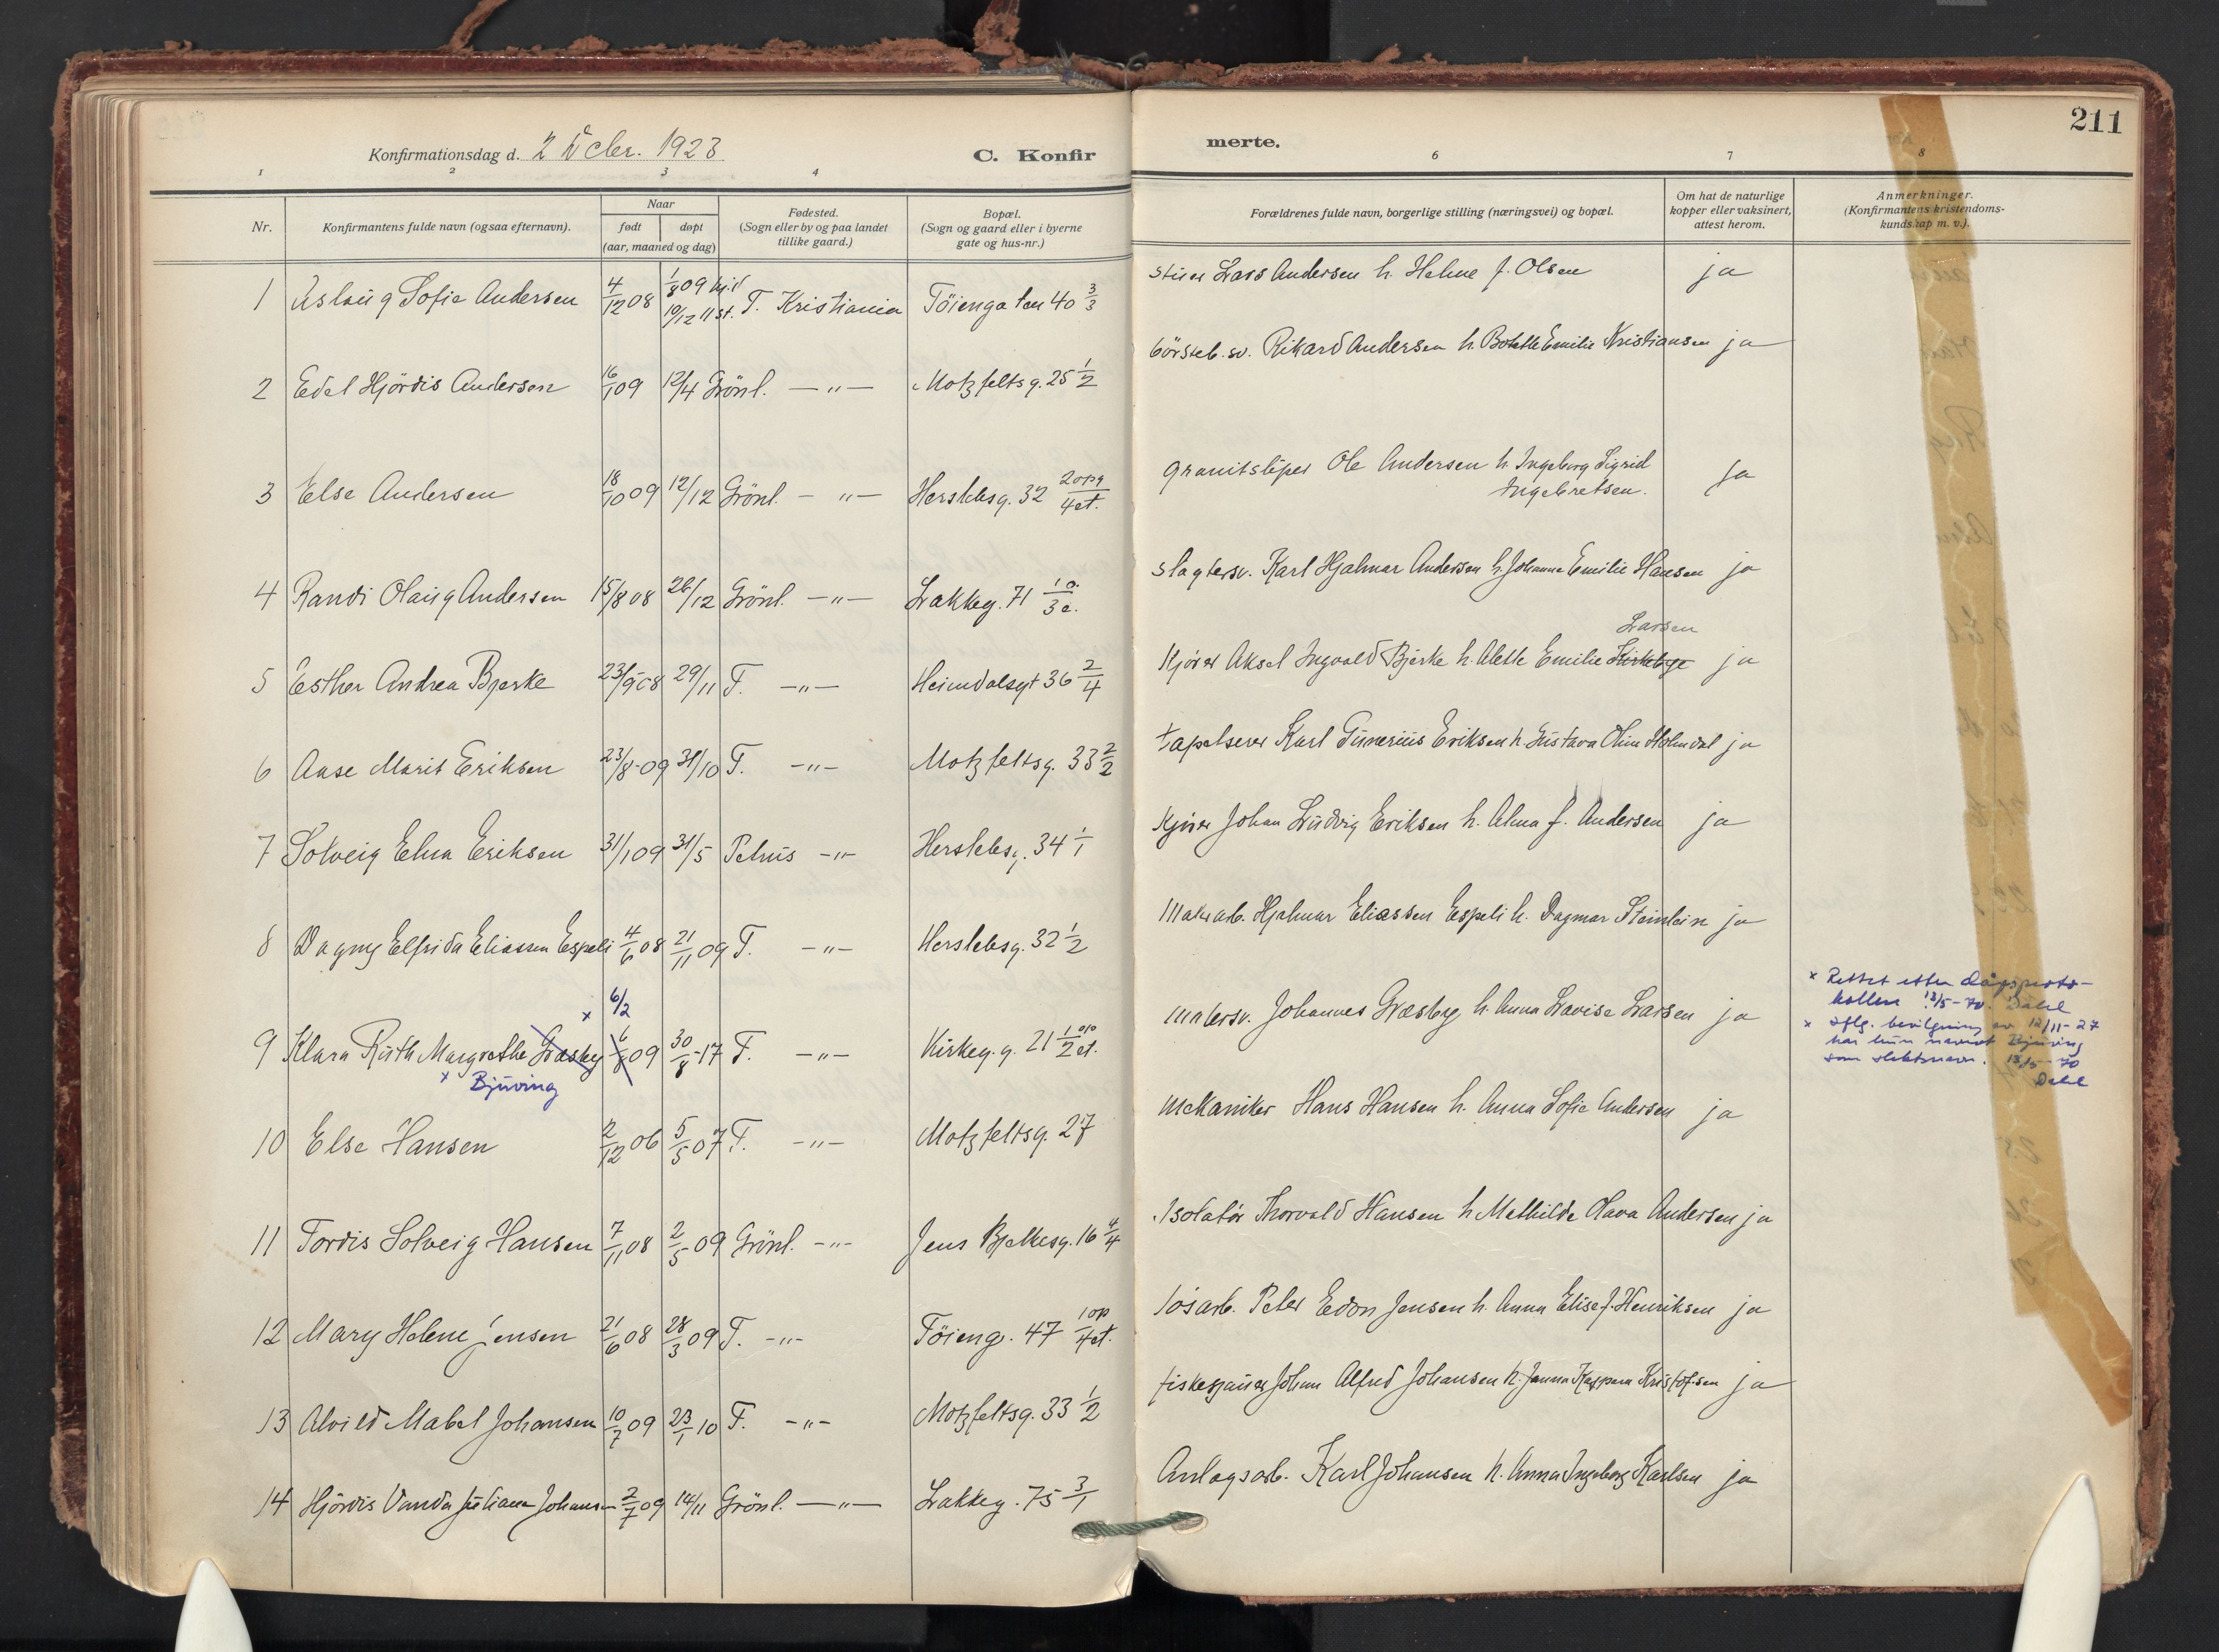 211
Konfirmationsdag d. 2 Decbr. 1923 C. Konfir merte.
1 2 3 4 6 7 8
Nr. Konfirmantens fulde navn (ogsaa efternavn). Naar født døpt (aar, maaned og dag) Fødested. (Sogn eller by og paa landet tillike gaard.) Bopæl. (Sogn og gaard eller i byerne gate og hus-nr.) Forældrenes fulde navn, borgerlige stilling (næringsvei) og bopæl. Om hat de naturlige kopper eller vaksinert, attest herom. Anmerkninger. (Konfirmantens kristendoms-kundskap m. v.).
1 Aslaug Sofie Andersen 4/12 08 1/8 09 hj.d 10/12 11 st. T. Kristiania Töiengaten 40 3/3 Lars Andersen h. Helene f. Olsen ja
2 Edel Hjördis Andersen 16/1 09 12/4 Grönl. —"— Motzfeltsg. 25 1/2 börsteb. sv. Rikard Andersen h. Bolette Emilie Kristiansen ja
3 Else Andersen 18/10 09 12/12 Grönl. —"— Herslebsg. 32 2opg/4et. granitsliper Ole Andersen h. Ingeborg Sigrid Ingebretsen. ja
4 Randi Olaug Andersen 15/8 08 26/12 Grönl. —"— Lakkeg. 71 1 o./3 e. slagtersv. Karl Hjalmar Andersen h. Johanne Emilie Hansen ja
5 Esther Andrea Bjerke 23/9-08 29/11 T. —"— Heimdalsgt 36 2/4 Kjörer Aksel Ingvald Bjerke h. Alette Emilie Kirkebye Larsen ja
6 Aase Marit Eriksen 23/8-09 31/10 T. —"— Motzfeltsg. 33 2/2 tapetserer Karl Gunerius Eriksen h. Gustava Oline Holmdal ja
7 Solveig Elna Eriksen 31/1 09 31/5 Petrus —"— Herslebsg. 34 1/1 Kjörer Johan Ludvig Eriksen h. Alma f. Andersen ja
8 Dagny Elfrida Eliassen Espeli 4/6 08 21/11 09 T. —"— Herslebsg. 32 1/2 Hjalmar Eliassen Espeli h. Dagmar Steinlein ja
x 6/2
9 Klara Ruth Margrethe Græsby 6/8 09 30/8-17 T. —"— Kirkeg. g. 21 1 op/2 et. malersv. Johannes Græsby h. Anna Lovise Larsen ja
x Bjuving
x Rettet etter dåpsproto-
kollen 13/5-70. Dahl
x Iflg. bevilgning av 12/11-27
har hun navnet Bjuving
som slektsnavn. 13/5-70
Dahl
10 Else Hansen 2/12 06 5/5 07 T. —"— Motzfeltsg. 27 mekaniker Hans Hansen h. Anna Sofie Andersen ja
11 Tordis Solveig Hansen 7/11 08 2/5 09 Grönl. —"— Jens Bjelkesg. 16 4/4 Isolatör Thorvald Hansen h. Mathilde Olava Andersen ja
12 Mary Helene Jensen 21/6 08 28/3 09 T. —"— Töieng. 47 1 op/4 et. lösarb. Peter Edon Jensen h. Anna Elise f. Henriksen ja
13 Alvild Mabel Johansen 10/7 09 23/1 10 T. —"— Motzfeltsg. 33 1/2 Johan Alfred Johansen h. Janna Kaspara Kristofsen ja
14 Hjördis Vanda Juliane Johansen 2/7 09 14/11 Grönl. —"— Lakkeg. 75 3/1 Anlagsarb. Karl Johansen h. Anna Ingeborg Karlsen ja